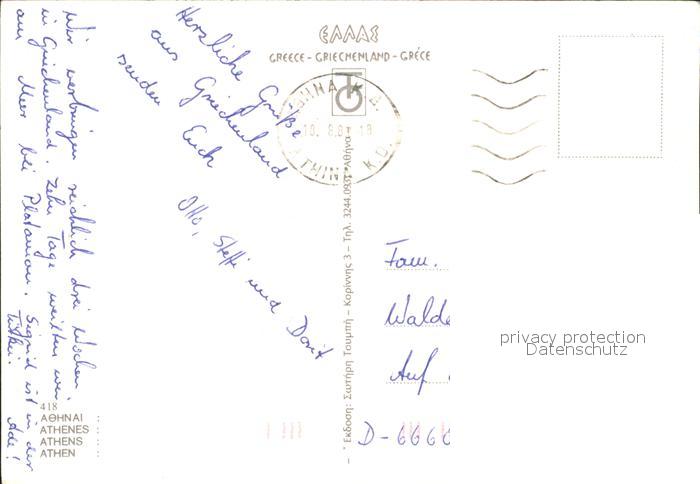 ΕΛΛΑΣ
GREECE - GRIECHENLAND - GRÈCE
Herzliche Grüße
aus Griechenland
senden Euch
Otto, Steffi und Dorit
Wir verbringen reichlich drei Wochen
in Griechenland. Zehn Tage weilten wir
am Meer bei Platamon. Sigrid ist in der
Türkei. Ade!
418
ΑΘΗΝΑΙ
ATHENES
ATHENS
ATHEN
Έκδοση: Σωτήρη Τουμπή - Κορίννης 3 - Τηλ. 3244.093 - Αθήνα
Fam.
Walde
Auf
D-6660
privacy protection
Datenschutz